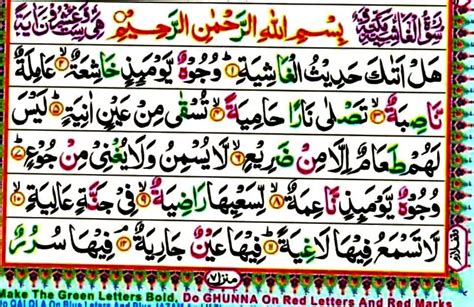 سُوْرَةُ الْغَاشِيَةِ مَكِّيَّةٌ بِسْمِ اللّٰهِ الرَّحْمٰنِ الرَّحِيْمِ
هَلْ اَتٰىكَ حَدِيْثُ الْغَاشِيَةِ ۝۱ وُجُوْهٌ يَّوْمَئِذٍ خَاشِعَةٌ ۝۲ عَامِلَةٌ
نَّاصِبَةٌ ۝۳ تَصْلٰى نَارًا حَامِيَةً ۝۴ تُسْقٰى مِنْ عَيْنٍ اٰنِيَةٍ ۝۵ لَيْسَ
لَهُمْ طَعَامٌ اِلَّا مِنْ ضَرِيْعٍ ۝۶ لَّا يُسْمِنُ وَلَا يُغْنِيْ مِنْ جُوْعٍ ۝۷
وُجُوْهٌ يَّوْمَئِذٍ نَّاعِمَةٌ ۝۸ لِّسَعْيِهَا رَاضِيَةٌ ۝۹ فِيْ جَنَّةٍ عَالِيَةٍ ۝۱۰
لَّا تَسْمَعُ فِيْهَا لَاغِيَةً ۝۱۱ فِيْهَا عَيْنٌ جَارِيَةٌ ۝۱۲ فِيْهَا سُرُرٌ
منزل ۷
Make The Green Letters Bold, Do GHUNNA On Red Letters And Red Marks